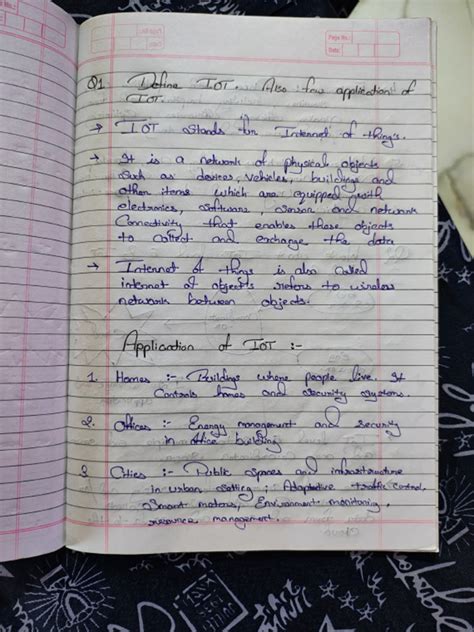 Page No.:
Date:
Q1 Define IOT. Also few application of
IOT.
→ IOT stands for Internet of thing's.
→ It is a network of physical objects
such as devices, vehicles, buildings and
other items which are equipped with
electronics, software, sensor and network
Connectivity that enables these objects
to collect and exchange the data
→ Internet of things is also called
internet of objects refers to wireless
network between objects.
Application of IOT :-
1. Homes :- Buildings where people live. It
Controls homes and security systems.
2. Offices :- Energy management and security
in office building
3 Cities :- Public spaces and infrastructure
in urban setting : Adaptive traffic control,
Smart meters, Environment monitoring,
resource management.